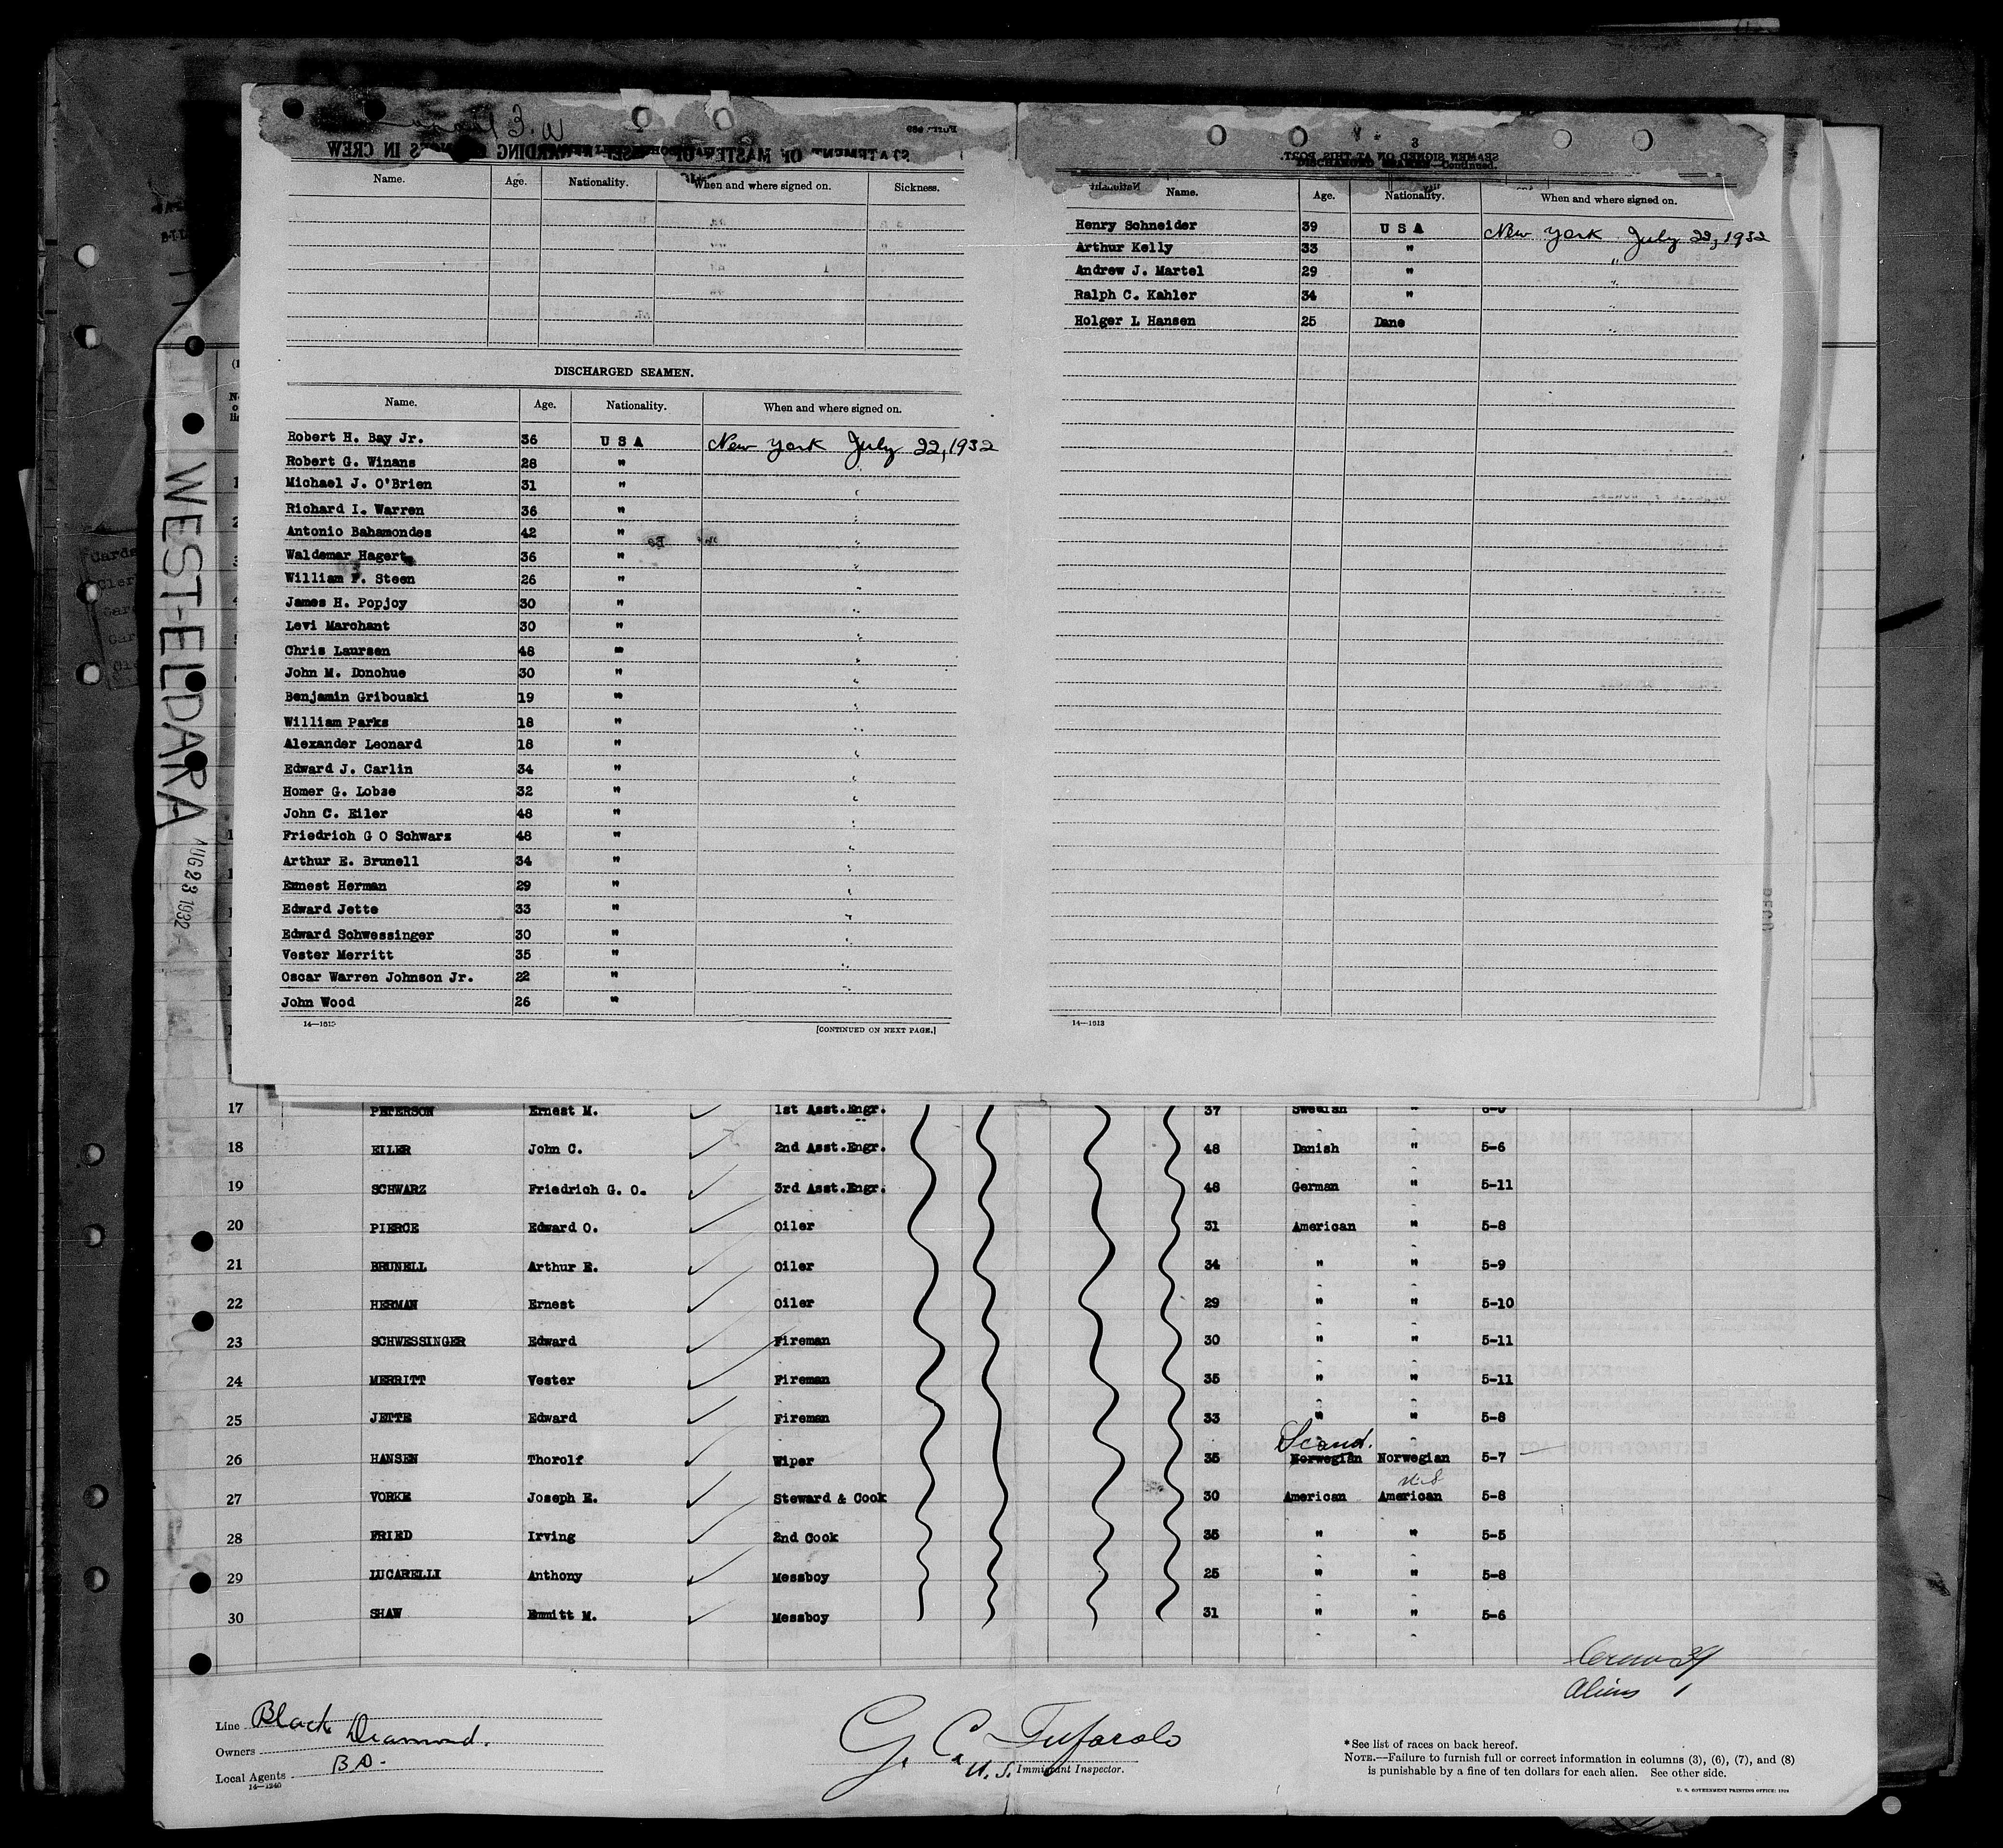 STATEMENT OF MASTER OF VESSEL REGARDING CHANGES IN CREW
Name. Age. Nationality. When and where signed on. Sickness.
DISCHARGED SEAMEN.
Name. Age. Nationality. When and where signed on.
Robert H. Bay Jr. 36 U S A New York July 22, 1932
Robert G. Winans 28 "
Michael J. O'Brien 31 "
Richard I. Warren 36 "
Antonio Bahamondes 42 "
Waldemar Hagert 36 "
William F. Steen 26 "
James H. Popjoy 30 "
Levi Marchant 30 "
Chris Laursen 48 "
John M. Donohue 30 "
Benjamin Gribouski 19 "
William Parks 18 "
Alexander Leonard 18 "
Edward J. Carlin 34 "
Homer G. Lobze 32 "
John C. Eiler 48 "
Friedrich G O Schwarz 48 "
Arthur E. Brunell 34 "
Ernest Herman 29 "
Edward Jette 33 "
Edward Schwessinger 30 "
Vester Merritt 35 "
Oscar Warren Johnson Jr. 22 "
John Wood 26 "
[CONTINUED ON NEXT PAGE.]
3
SEAMEN SIGNED ON AT THIS PORT.
DISCHARGED SEAMEN—Continued.
Name. Age. Nationality. When and where signed on.
Henry Schneider 39 U S A New York July 22, 1932
Arthur Kelly 33 " "
Andrew J. Martel 29 " "
Ralph C. Kahler 34 "
Holger L Hansen 25 Dane "
14—1613
WEST-ELDARA
AUG 23 1932
17 PETERSON Ernest M. 1st Asst.Engr. 37 Swedish "
18 EILER John C. 2nd Asst.Engr. 48 Danish " 5-6
19 SCHWARZ Friedrich G. O. 3rd Asst.Engr. 48 German " 5-11
20 PIERCE Edward O. Oiler 31 American " 5-8
21 BRUNELL Arthur E. Oiler 34 " " 5-9
22 HERMAN Ernest Oiler 29 " " 5-10
23 SCHWESSINGER Edward Fireman 30 " " 5-11
24 MERRITT Vester Fireman 35 " " 5-11
25 JETTE Edward Fireman 33 " " 5-8
Scand.
26 HANSEN Thorolf Wiper 35 Norwegian Norwegian 5-7
U.S
27 VORKE Joseph E. Steward & Cook 30 American American 5-8
28 FRIED Irving 2nd Cook 35 " " 5-5
29 LUCARELLI Anthony Messboy 25 " " 5-8
30 SHAW Emmitt M. Messboy 31 " " 5-6
Aliens 1
Line Black Diamond.
Owners
Local Agents B.D.
14—1240
G. C. Tufarolo
U.S. Immigrant Inspector.
*See list of races on back hereof.
NOTE.—Failure to furnish full or correct information in columns (3), (6), (7), and (8)
is punishable by a fine of ten dollars for each alien. See other side.
U. S. GOVERNMENT PRINTING OFFICE: 1928